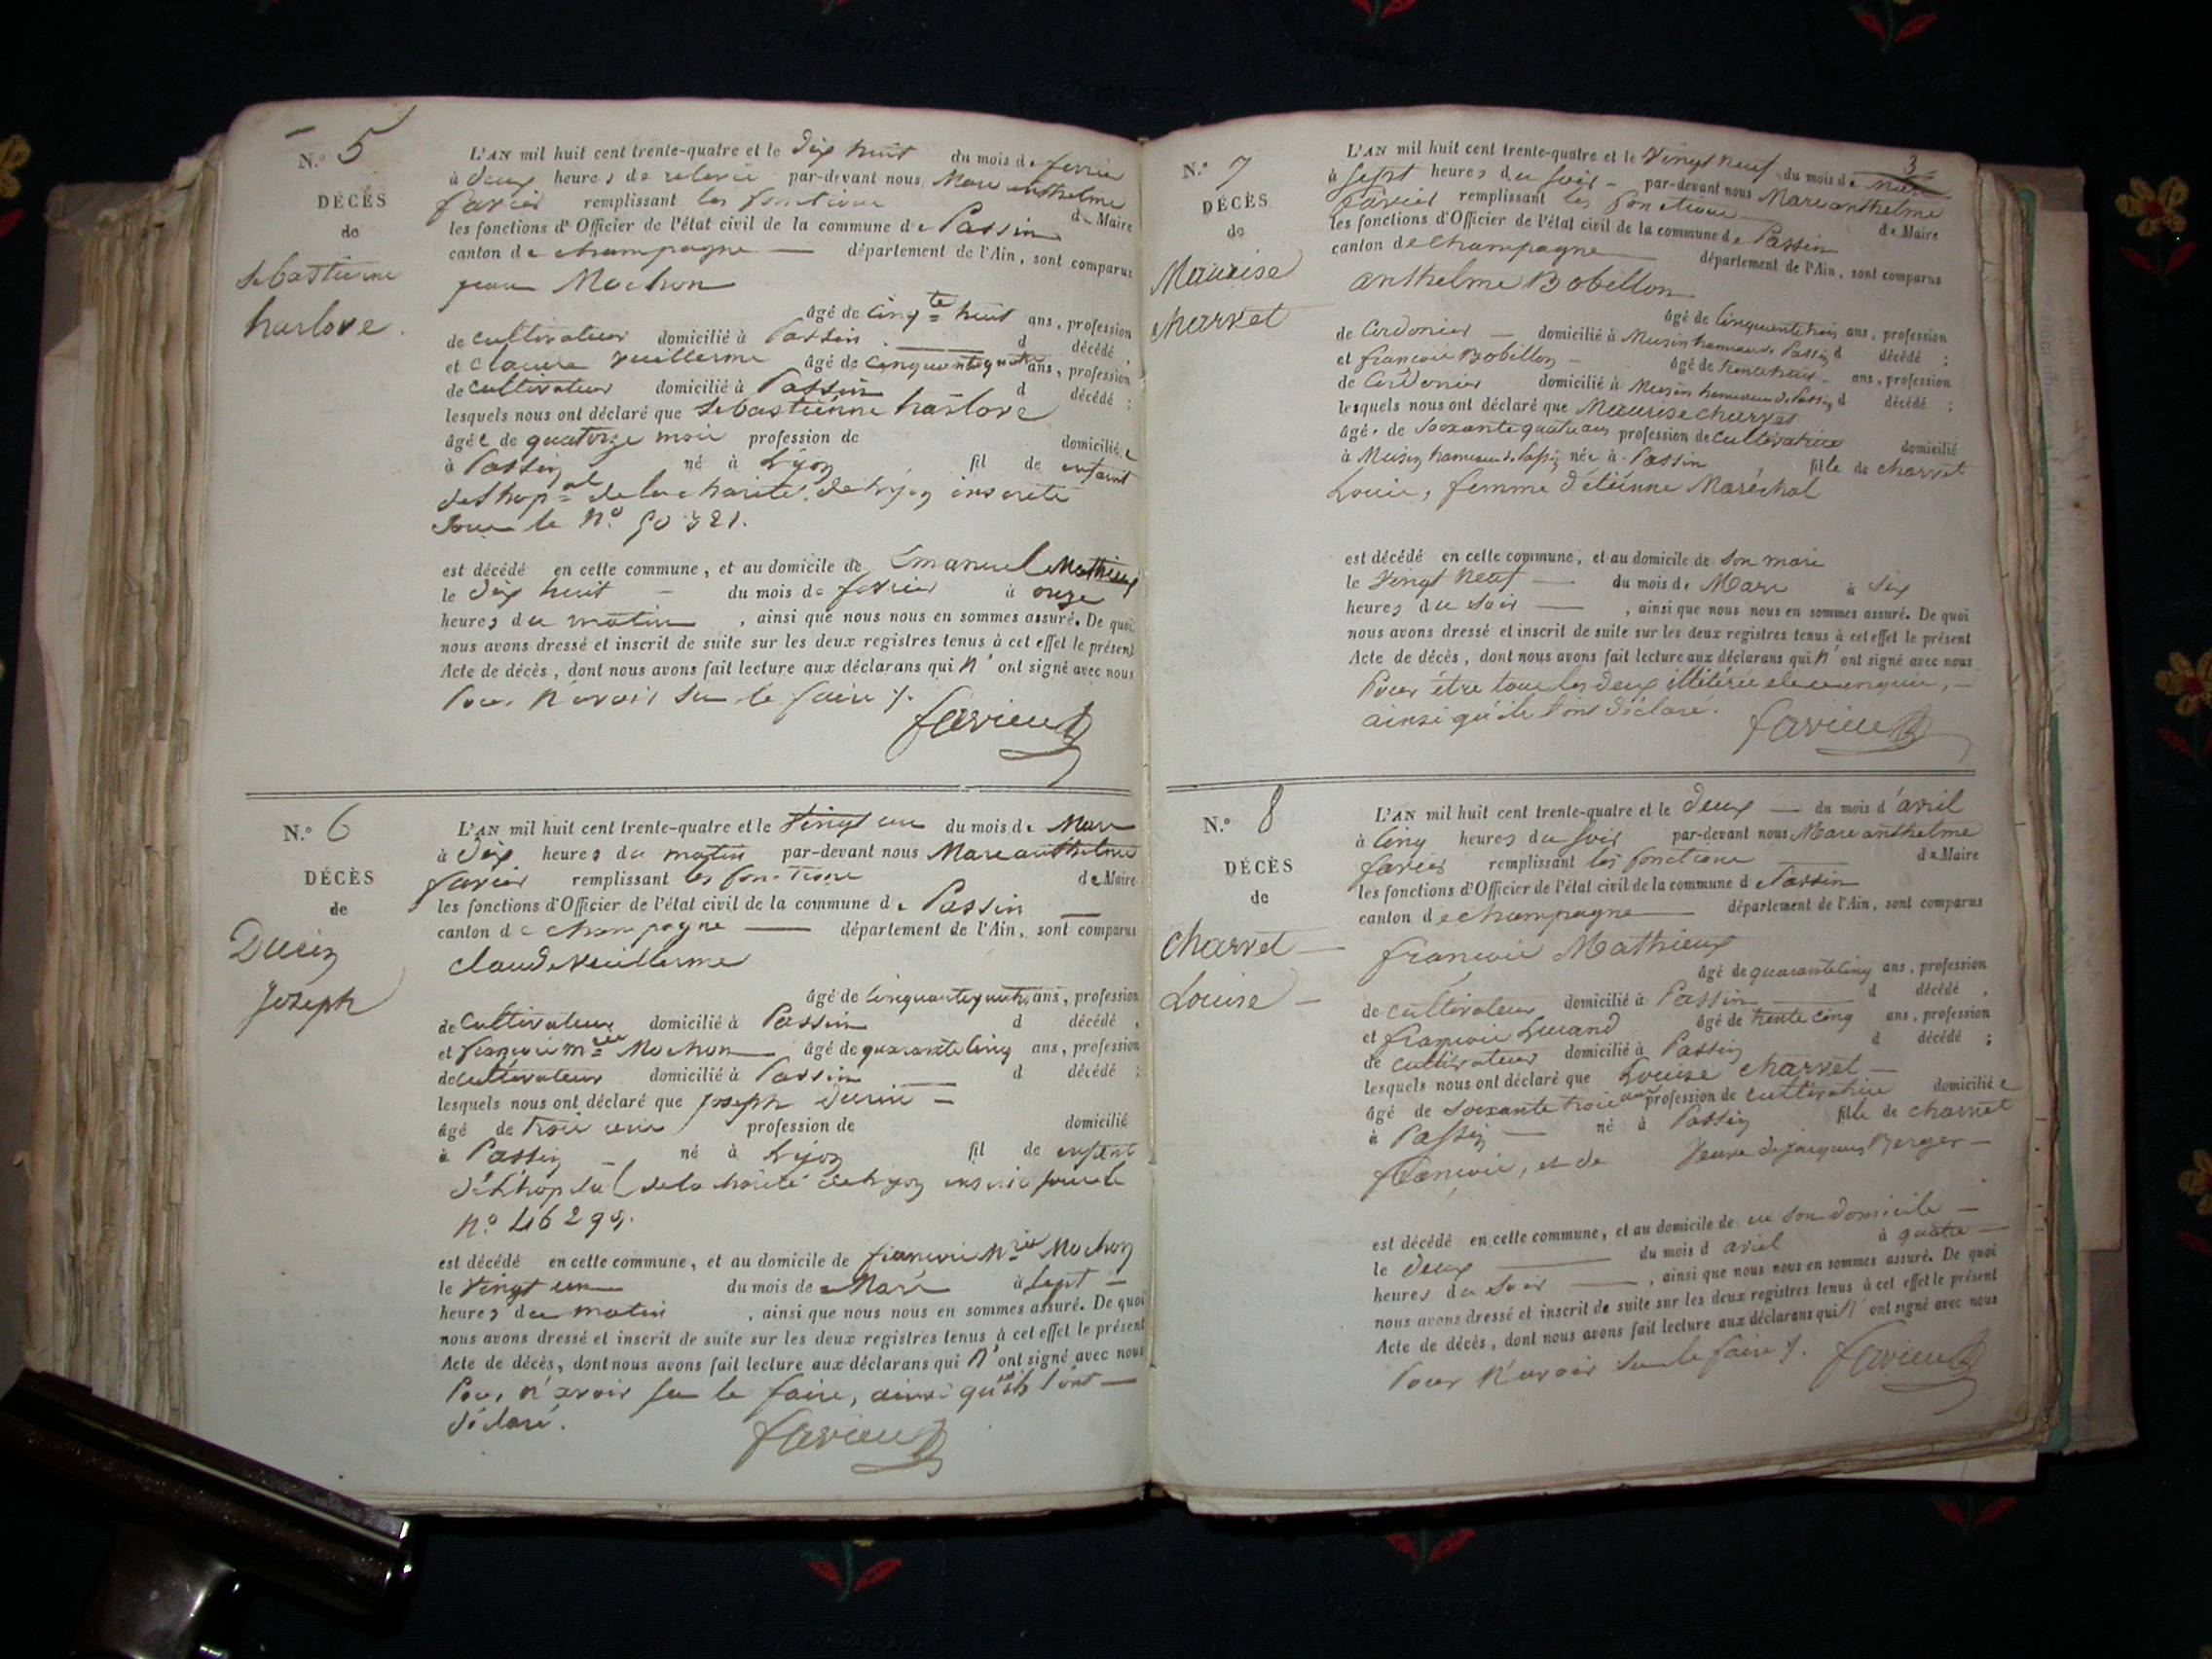 N.° 5
DÉCÈS
de
Sebastienne
harlove.
L'AN mil huit cent trente-quatre et le dix huit du mois de fevrier
à deux heures de relevée par-devant nous Marc anthelme
favier remplissant les fonctions de Maire
les fonctions d'Officier de l'état civil de la commune de Passin
canton de champagne département de l'Ain, sont comparus
jean Mochon
âgé de cinqte huit ans, profession
de cultivateur domicilié à Passin d décédé,
et claude vuillerme âgé de cinquante quatre ans, profession
de cultivateur domicilié à Passin d décédé;
lesquels nous ont déclaré que Sebastienne harlove
âgée de quatorze mois profession de domiciliée
à Passin né à Lyon fil de enfant
de Lhop=al de la charité de Lyon inscrite
sous le N.° 50321.
est décédé en cette commune, et au domicile de Emanuel Mathieux
le dix huit du mois de fevrier à onze
heures du matin, ainsi que nous nous en sommes assuré. De quoi
nous avons dressé et inscrit de suite sur les deux registres tenus à cet effet le présent
Acte de décès, dont nous avons fait lecture aux déclarans qui n'ont signé avec nous
Pour n'avoir su le faire.
favier
N.° 6
DÉCÈS
de
Durin
Joseph
L'AN mil huit cent trente-quatre et le vingt un du mois de Mars
à dix heures du matin par-devant nous Marc anthelme
favier remplissant les fonctions de Maire
les fonctions d'Officier de l'état civil de la commune de Passin
canton de champagne département de l'Ain, sont comparus
claude vuillerme
âgé de cinquante quatre ans, profession
de cultivateur domicilié à Passin d décédé,
et françois m=rie Mochon âgé de quarante cinq ans, profession
de cultivateur domicilié à Passin d décédé;
lesquels nous ont déclaré que joseph durin
âgé de trois ans profession de domicilié
à Passin né à Lyon fil de enfant
de Lhopital de la charité de Lyon inscrit sous le
n.° 46299.
est décédé en cette commune, et au domicile de françois M=rie Mochon
le vingt un du mois de Mars à sept
heures du matin, ainsi que nous nous en sommes assuré. De quoi
nous avons dressé et inscrit de suite sur les deux registres tenus à cet effet le présent
Acte de décès, dont nous avons fait lecture aux déclarans qui n'ont signé avec nous
Pour n'avoir su le faire, ainsi qu'ils l'ont
déclaré.
favier
3
N.° 7
DÉCÈS
de
Maurise
charvet
L'AN mil huit cent trente-quatre et le vingt neuf du mois de mars
à sept heures du soir par-devant nous Marc anthelme
favier remplissant les fonctions de Maire
les fonctions d'Officier de l'état civil de la commune de Passin
canton de champagne département de l'Ain, sont comparus
anthelme Bobillon
âgé de cinquante trois ans, profession
de Cordonier domicilié à Musin hameau de Passin d décédé;
et françois Bobillon âgé de ans, profession
de Cordonier domicilié à Musin hameau de Passin d décédé;
lesquels nous ont déclaré que Maurise charvet
âgée de soixante quatre ans profession de cultivatrice domicilié
à Musin hameau de Passin née à Passin, fille de charvet
Louis, femme d'étienne Maréchal
est décédé en cette commune, et au domicile de son mari
le vingt neuf du mois de Mars à six
heures du soir, ainsi que nous nous en sommes assuré. De quoi
nous avons dressé et inscrit de suite sur les deux registres tenus à cet effet le présent
Acte de décès, dont nous avons fait lecture aux déclarans qui n'ont signé avec nous
Pour être tous les deux
ainsi qu'ils l'ont déclaré.
favier
N.° 8
DÉCÈS
de
charvet
Louise
L'AN mil huit cent trente-quatre et le deux du mois d'avril
à cinq heures du soir par-devant nous Marc anthelme
favier remplissant les fonctions de Maire
les fonctions d'Officier de l'état civil de la commune de Passin
canton de champagne département de l'Ain, sont comparus
françois Mathieux
âgé de quarante cinq ans, profession
de cultivateur domicilié à Passin d décédé,
et françois Durand âgé de trente cinq ans, profession
de cultivateur domicilié à Passin d décédé;
lesquels nous ont déclaré que Louise charvet
âgé de soixante trois ans profession de cultivatrice domiciliée
à Passin né à Passin fille de charvet
françois, et de Veuve de jacques Berger
est décédé en cette commune, et au domicile de en son domicile
le deux du mois d avril à quatre
heures du soir, ainsi que nous nous en sommes assuré. De quoi
nous avons dressé et inscrit de suite sur les deux registres tenus à cet effet le présent
Acte de décès, dont nous avons fait lecture aux déclarans qui n'ont signé avec nous
Pour n'avoir su le faire.
favier